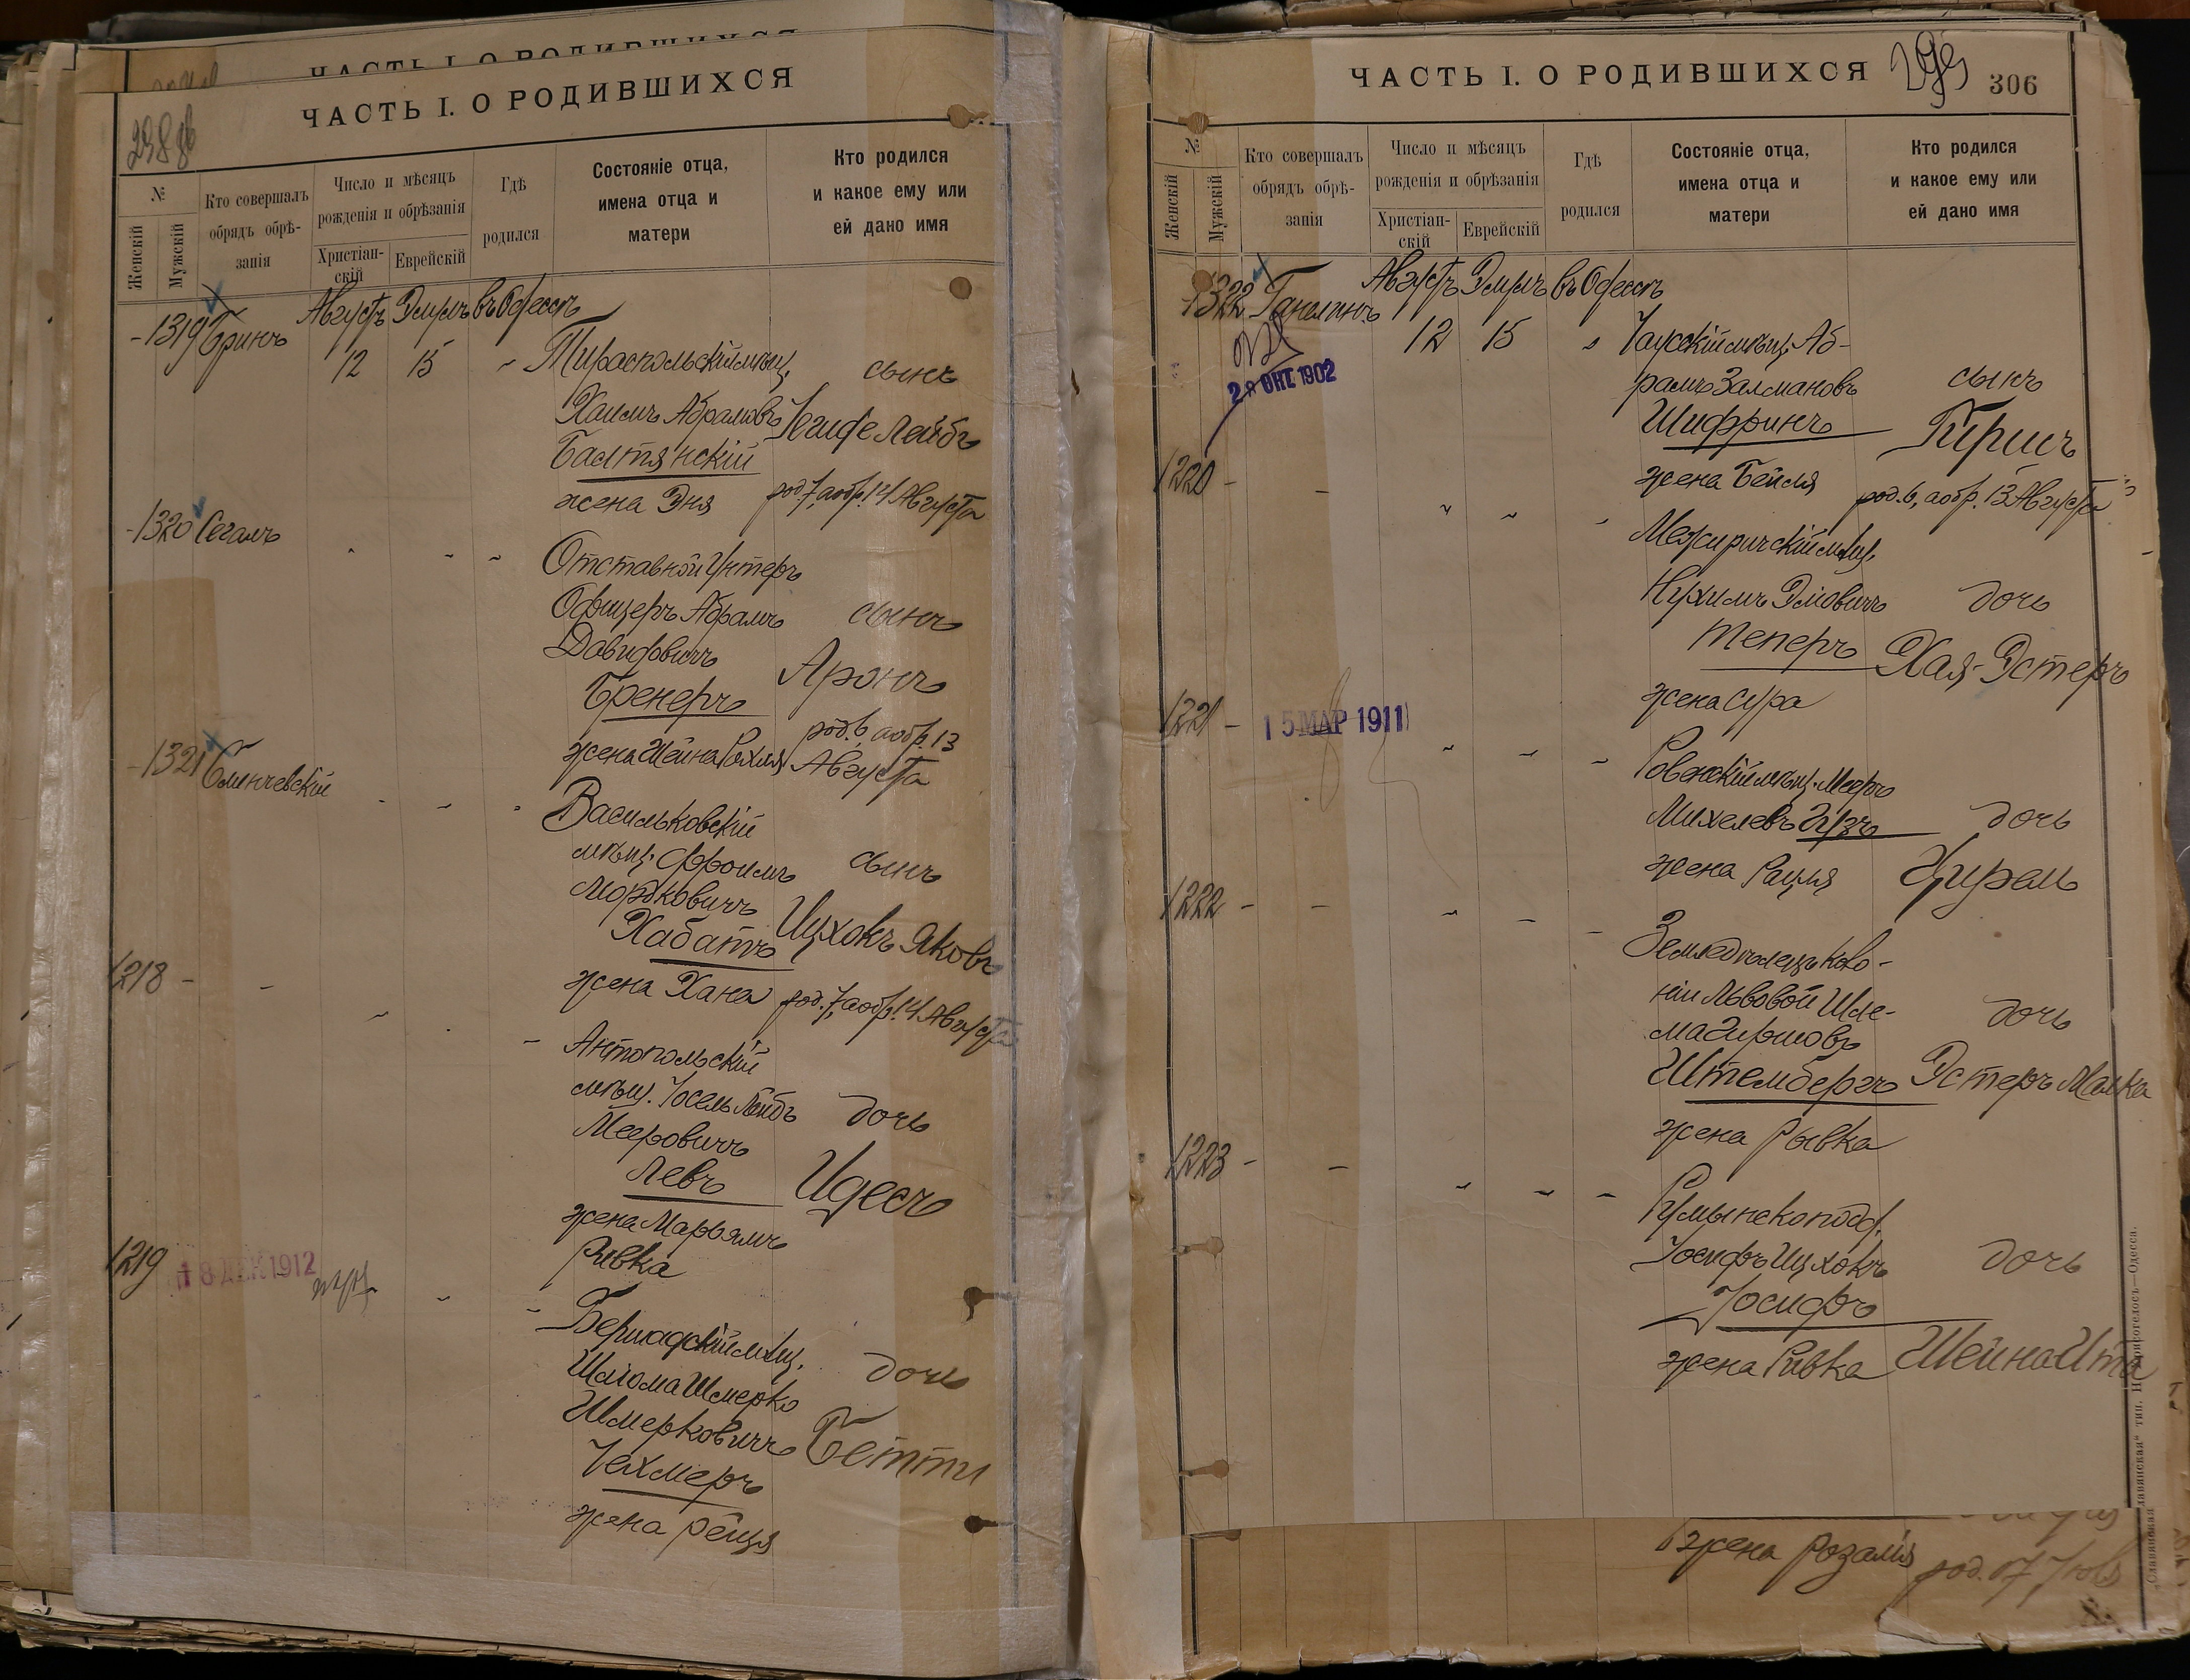 ЧАСТЬ I. О РОДИВШИХСЯ
ЧАСТЬ I. О РОДИВШИХСЯ
№
Женскій
Мужскій
Кто совершалъ
обрядъ обрѣ-
занія
Число и мѣсяцъ
рожденія и обрѣзанія
Христіан-
скій
Еврейскій
Гдѣ
родился
Состояніе отца,
имена отца и
матери
Кто родился
и какое ему или
ей дано имя
Августъ Элулъ въ Одессѣ
1319 Гринъ
12 15 Тираспольскій мѣщ.
сынъ
Хаимъ Абрамовъ
Балтянскій
Іегиде Лейбъ
жена Эня
род. 7, а обр. 14 Августа
1320 Сегалъ
Отставной Унтеръ
Офицеръ Абрамъ
сынъ
Давидовичъ
Аронъ
Бренеръ
род. 6, а обр. 13
жена Шейна Рохля
Августа
1321
Васильковскій
мѣщ. Эфроимъ
сынъ
Мордковичъ
Ицхокъ Яковъ
Хабатъ
жена Хана
род. 7, а обр. 14 Августа
1218 -
Антопольскій
мѣщ. Іосель Лейбъ
дочь
Мееровичъ
Левъ
Идесъ
жена Марьямъ
Ривка
1219
18 ДЕК 1912
Бершадскій мѣщ.
дочь
Шлома Шмерко
Шмерковичъ
Бетти
Чехмеръ
жена Рейзя
ЧАСТЬ I. О РОДИВШИХСЯ
306
№
Женскій
Мужскій
Кто совершалъ
обрядъ обрѣ-
занія
Число и мѣсяцъ
рожденія и обрѣзанія
Христіан-
скій
Еврейскій
Гдѣ
родился
Состояніе отца,
имена отца и
матери
Кто родился
и какое ему или
ей дано имя
Августъ Элулъ въ Одессѣ
1322 Ганелинъ
12 15 Чаусскій мѣщ. Аб-
рамъ Залмановъ
сынъ
28 ОКТ 1902
Шифринъ
Гиршъ
жена Бейля
род. 6, а обр. 13 Августа
1220 -
Межиричскій мѣщ.
Нухимъ Эліовичъ
дочь
Теперъ
Хая-Эстеръ
жена Сура
1221 -
15 МАР 1911
Ровенскій мѣщ. Мееръ
Михелевъ Гузъ
дочь
жена Рацля
Цирель
1222 -
Земледѣлецъ коло-
ніи Львовой Шле-
дочь
ма Гиршовъ
Штембергъ
Эстеръ Малка
жена Рывка
1223 -
Румынскоподд.
Іосифъ Ицхокъ
дочь
Іосифъ
жена Ривка
Шейна Ита
жена Розалія